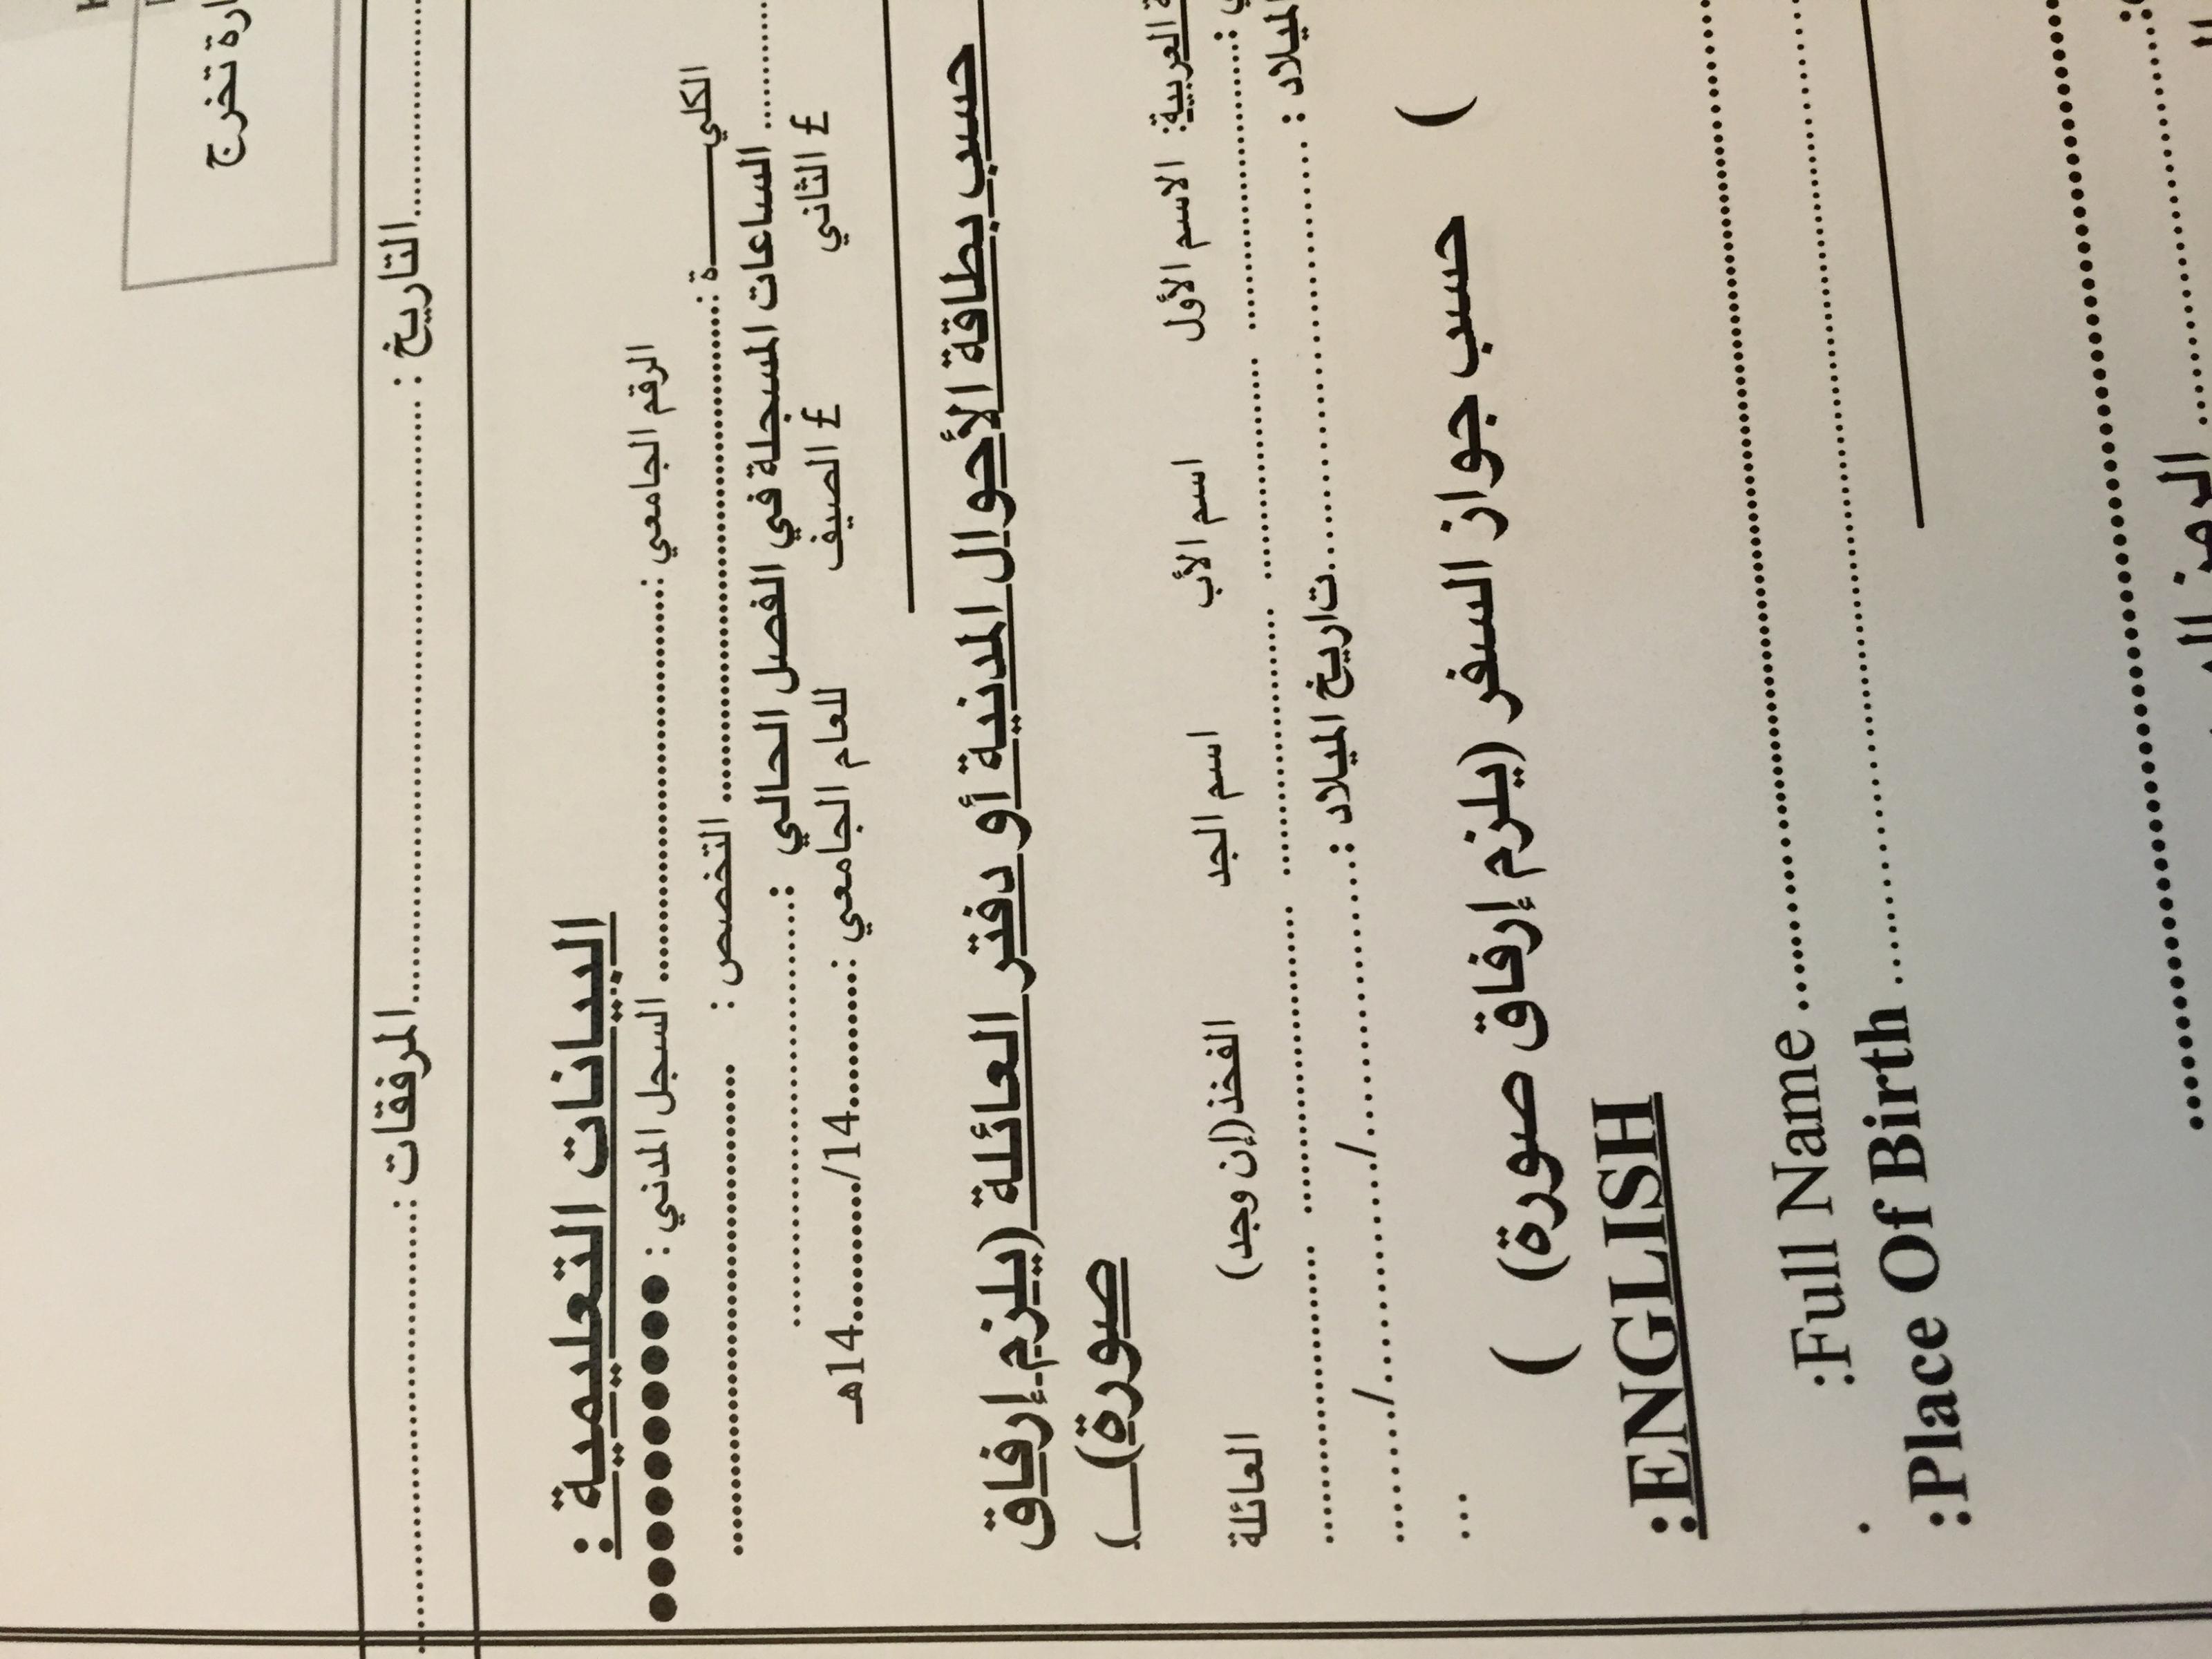 ارة تخرج
التاريخ : ........................ المرفقات : ........................
البيانات التعليمية :
الرقم الجامعي : ........................ السجل المدني : ●●●●●●●●●●
الكليـــــة : ........................ التخصص : ........................
........ الساعات المسجلة في الفصل الحالي : ........................
£ الثاني £ الصيف للعام الجامعي : ..........14/..........14هـ
حسب بطاقة الأحوال المدنية أو دفتر العائلة (يلزم إرفاق
صورة) (
العربية: الاسم الأول اسم الأب اسم الجد الفخذ(إن وجد) العائلة
: ........................ ........................ ........................ ........................ ........................
الميلاد : ........................تاريخ الميلاد : ............/............/............
...
( حسب جواز السفر (يلزم إرفاق صورة) )
ENGLISH:
Full Name ........................:
.
Place Of Birth ........................:
........................